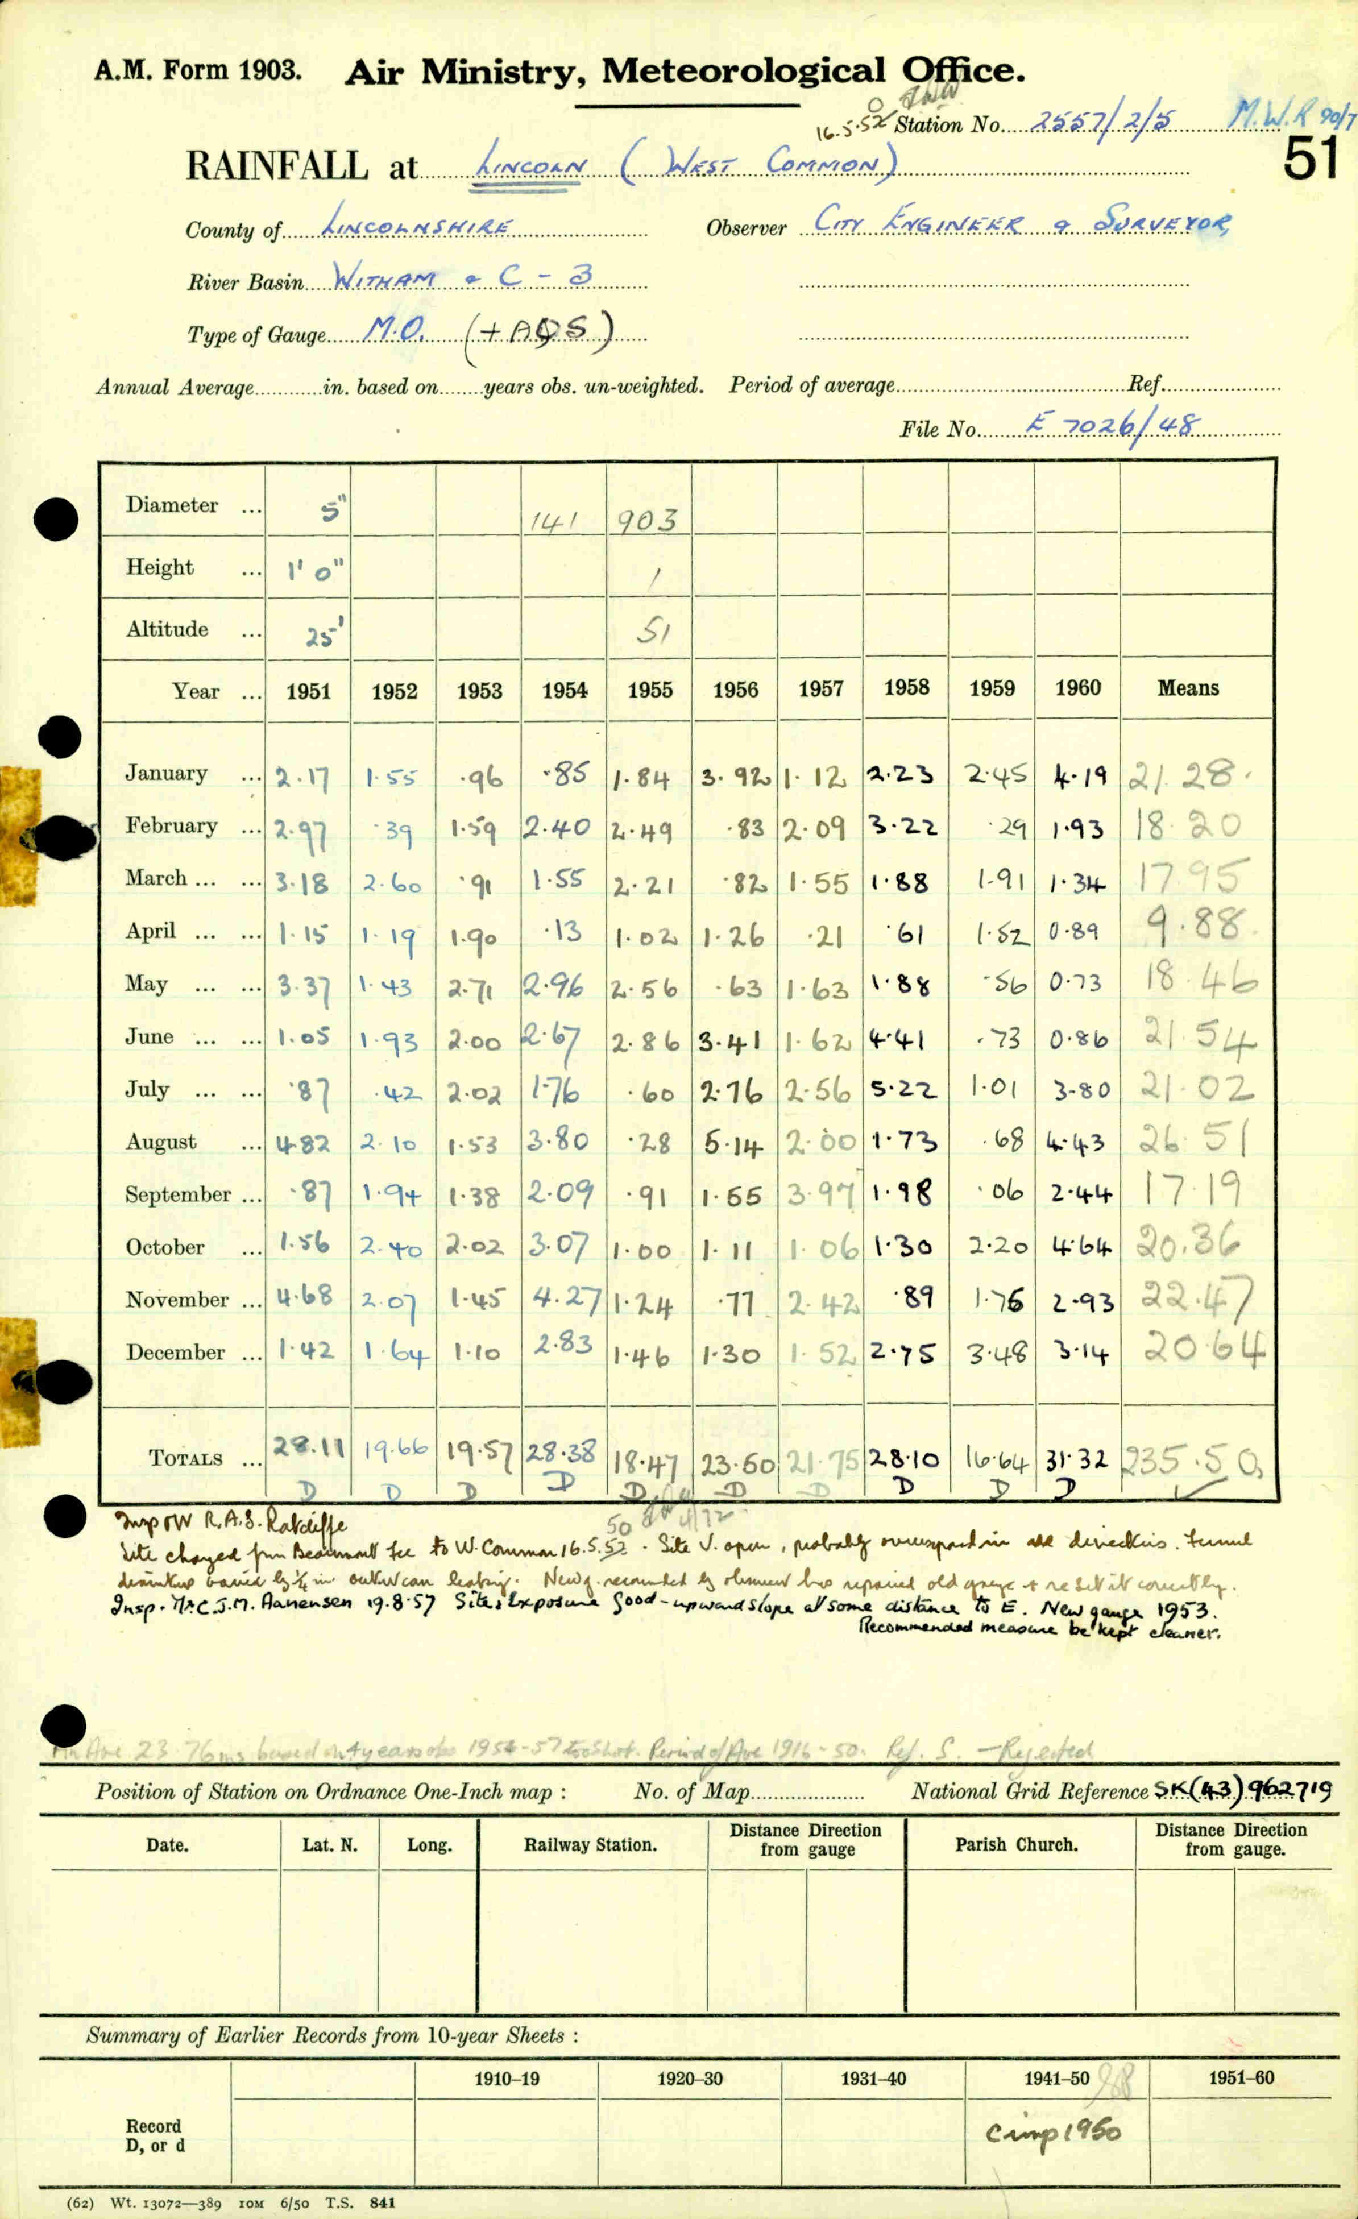 A.M. Form 1903. Air Ministry, Meteorological Office.
16.5.52 Station No. 2557/2/5 M.W.R 90/7
51
RAINFALL at LINCOLN (WEST COMMON)
County of LINCOLNSHIRE Observer CITY ENGINEER & SURVEYOR,
River Basin WITHAM & C - 3
Type of Gauge M.O. (+ AQS)
Annual Average in. based on years obs. un-weighted. Period of average Ref.
File No. E 7026/48
Diameter ... 5" 141 903
Height ... 1' 0" 1
Altitude ... 25' 51
Year ... 1951 1952 1953 1954 1955 1956 1957 1958 1959 1960 Means
January ... 2.17 1.55 .96 .85 1.84 3.92 1.12 2.23 2.45 4.19 21.28
February ... 2.97 .39 1.59 2.40 2.49 .83 2.09 3.22 .29 1.93 18.20
March ... ... 3.18 2.60 .91 1.55 2.21 .82 1.55 1.88 1.91 1.34 17.95
April ... ... 1.15 1.19 1.90 .13 1.02 1.26 .21 .61 1.52 0.89 9.88
May ... ... 3.37 1.43 2.71 2.96 2.56 .63 1.63 1.88 .56 0.73 18.46
June ... ... 1.05 1.93 2.00 2.67 2.86 3.41 1.62 4.41 .73 0.86 21.54
July ... ... .87 .42 2.02 1.76 .60 2.76 2.56 5.22 1.01 3.80 21.02
August ... 4.82 2.10 1.53 3.80 .28 5.14 2.00 1.73 .68 4.43 26.51
September ... .87 1.94 1.38 2.09 .91 1.55 3.97 1.98 .06 2.44 17.19
October ... 1.56 2.40 2.02 3.07 1.00 1.11 1.06 1.30 2.20 4.64 20.36
November ... 4.68 2.07 1.45 4.27 1.24 .77 2.42 .89 1.75 2.93 22.47
December ... 1.42 1.64 1.10 2.83 1.46 1.30 1.52 2.75 3.48 3.14 20.64
TOTALS ... 28.11 19.66 19.57 28.38 18.47 23.50 21.75 28.10 16.64 31.32 235.50
D D D D D D D D D D
Insp OW R.A.S. Ratcliffe
Site changed from Beaumont Fee to W. Common 16.5.52. Site V. open, probably overexposed in all directions. Funnel
diameter varied by 1/4 in outer can leaking. New g. recommended by observer has repaired old gauge & reset it correctly.
Insp. Mr C.J.M. Aanensen 19.8.57 Site & Exposure Good - upward slope at some distance to E. New gauge 1953.
Recommended measure be kept cleaner.
Ave 23.76 ins based on 4 years obs 1954-57 too short. Period of Ave 1916-50. Ref. S. - Rejected
Position of Station on Ordnance One-Inch map : No. of Map National Grid Reference SK(43)962719
Date. Lat. N. Long. Railway Station. Distance from Direction gauge Parish Church. Distance from Direction gauge.
Summary of Earlier Records from 10-year Sheets :
1910–19 1920–30 1931–40 1941–50 1951–60
Record D, or d C imp 1950
(62) Wt. 13072—389 10M 6/50 T.S. 841